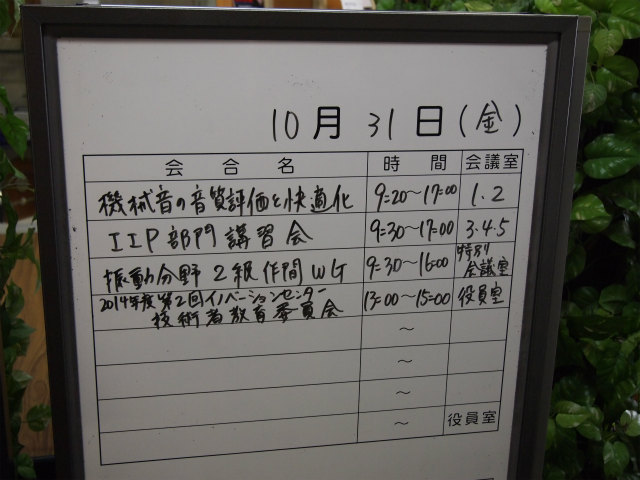 10月 31日(金)
会合名 時間 会議室
機械音の音質評価と快適化 9:20～17:00 1.2
IIP部門講習会 9:30～17:00 3.4.5
振動分野2級作問WG 9:30～16:00 特別会議室
2014年度第2回イノベーションセンター
技術者教育委員会 13:00～15:00 役員室
～
～
～
～ 役員室